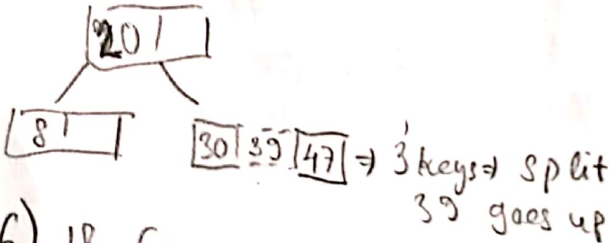 20
8 30 39 47 ⇒ 3 keys ⇒ split
39 goes up